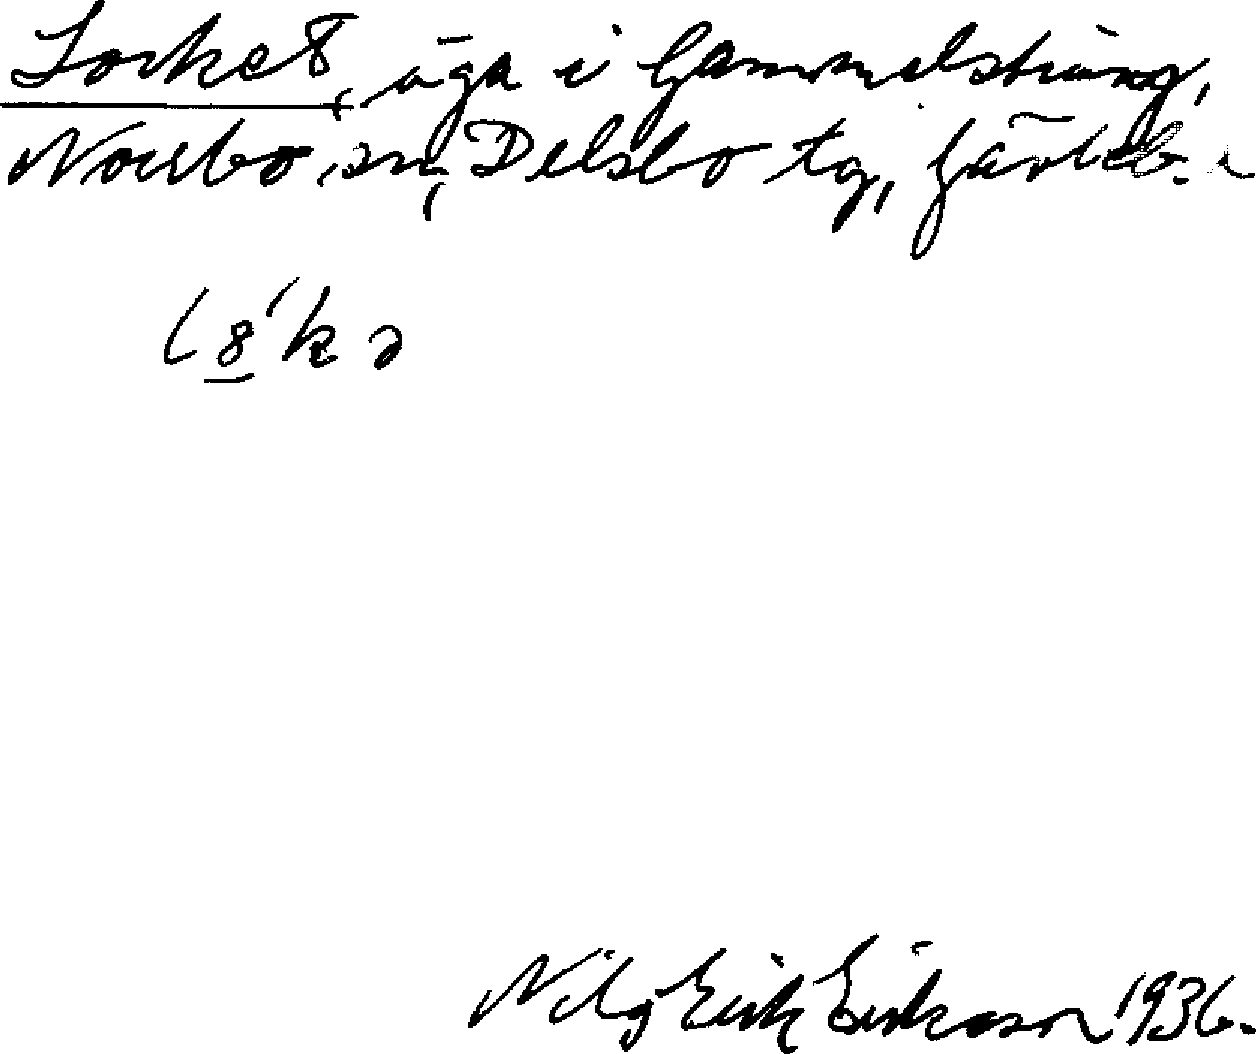 Locket, äga i Gammelsträng,
Norrbo sn, Delsbo tg, Gävleb. l
Nils Erik Eriksson 1936.